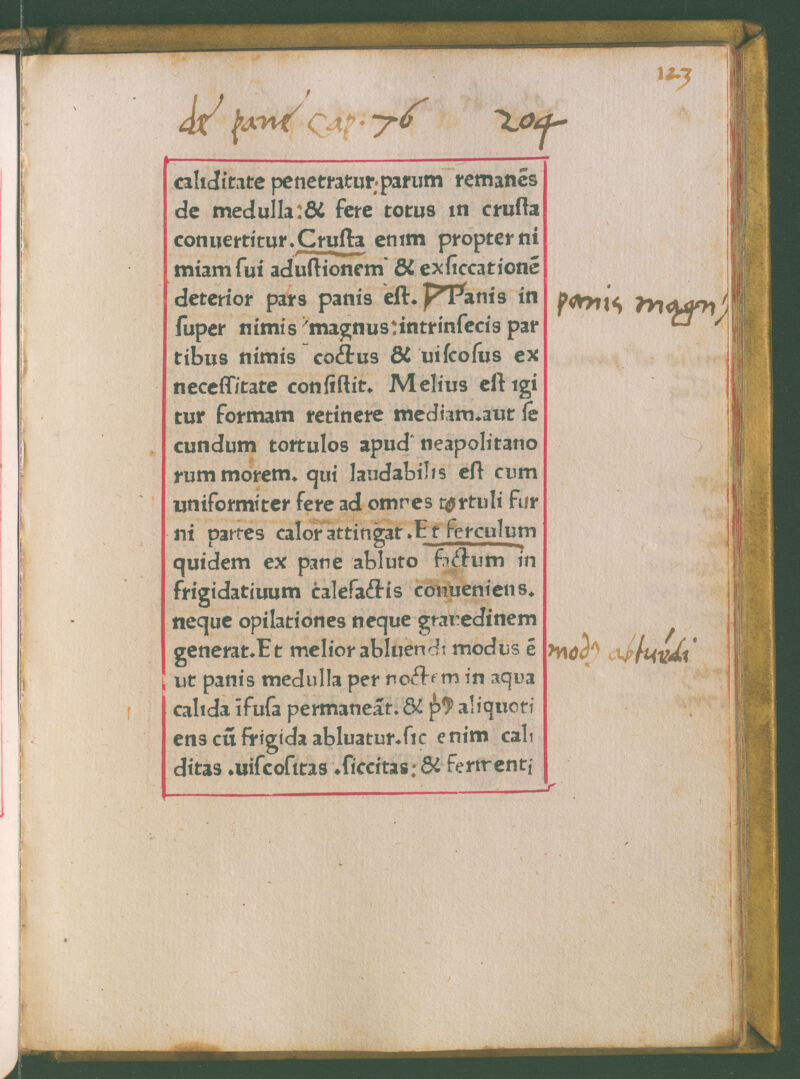 123
de pane Cap. 76 204
caliditate penetratur: parum remanēs
de medulla: & fere totus in cruſta
conuertitur. Cruſta enim propter ni
miam ſui aduſtionem & exſiccationē
deterior pars panis eſt. Panis in
ſuper nimis magnus: intrinſecis par
tibus nimis coctus & uiſcoſus ex
neceſſitate conſiſtit. Melius eſt igi
tur formam retinere mediam. aut ſe
cundum tortulos apud neapolitano
rum morem. qui laudabilis eſt cum
uniformiter fere ad omnes tortuli fur
ni partes calor attingat. Et ferculum
quidem ex pane abluto factum in
frigidatiuum calefactis conueniens.
neque opilationes neque grauedinem
generat. Et melior abluendi modus ē
ut panis medulla per noctem in aqua
calida īfuſa permaneāt. & pꝰ aliquoti
ens cū frigida abluatur. ſic enim cali
ditas .uiſcoſitas .ſiccitas: & fermenti
panis magnꝰ
modꝰ abluēdi